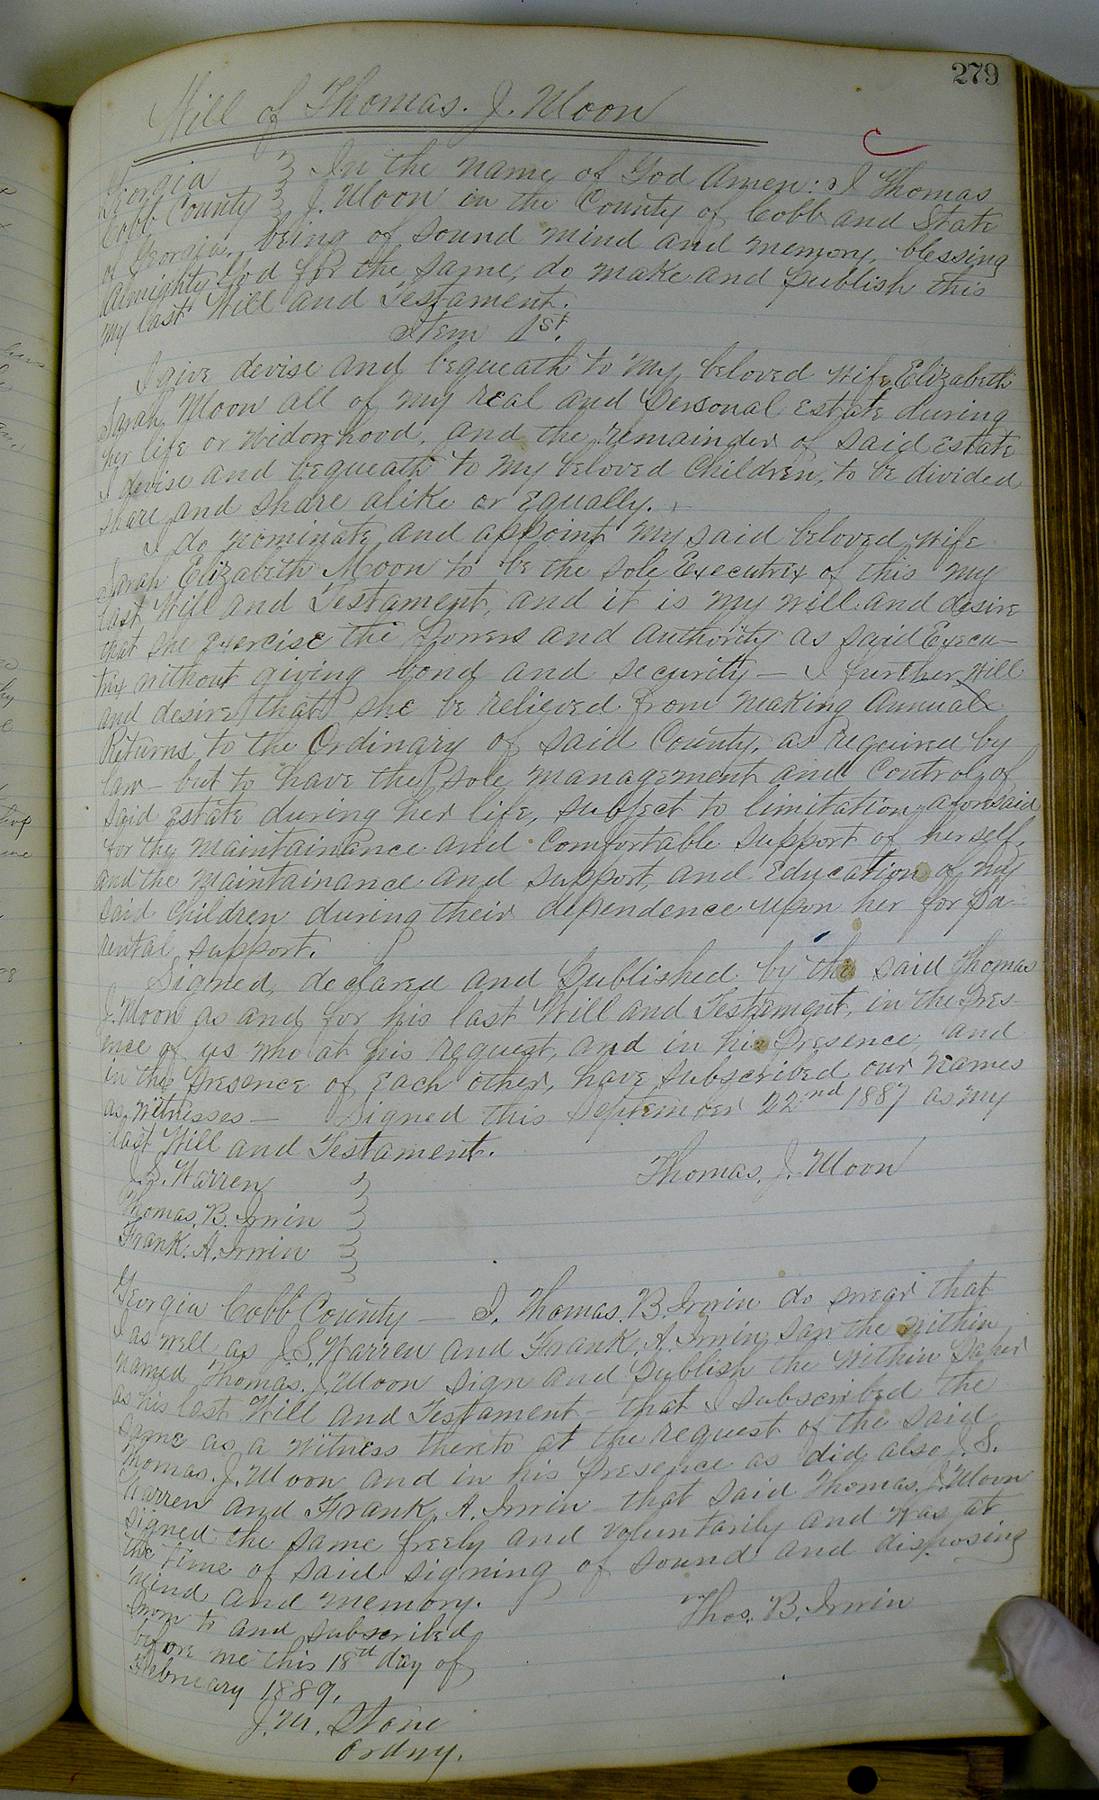 279
Will of Thomas. J. Moon
Georgia } In the name of God Amen: I Thomas
Cobb County } J. Moon in the County of Cobb and State
of Georgia, being of sound mind and memory, blessing
Almighty God for the same, do make and publish this
my last Will and Testament.
Item 1st.
I give devise and bequeath to my beloved wife Elizabeth
Sarah Moon all of my real and Personal Estate during
her life or widowhood, and the remainder of said estate
I devise and bequeath to my beloved Children, to be divided
share and share alike or Equally.
I do nominate and appoint my said beloved wife
Sarah Elizabeth Moon to be the sole Executrix of this my
last Will and Testament, and it is my will and desire
that she exercise the Powers and authority as said Execu-
trix without giving bond and security - I further will
and desire that she be relieved from making Annual
Returns to the Ordinary of said County, as required by
law - but to have the sole management and Control of
said Estate during her life, subject to limitation aforesaid
for the maintainance and Comfortable support of herself,
and the maintainance and support, and Education of my
said Children during their dependence upon her for Pa-
rental support.
Signed, declared and Published by the said Thomas
J. Moon as and for his last Will and Testament, in the Pres-
ence of us who at his request, and in his Presence, and
in the Presence of Each other, have subscribed our names
as witnesses - Signed this September 22nd 1887 as my
last Will and Testament.
Thomas. J. Moon
J. S. Warren }
Thomas. B. Irwin }
Frank. A. Irwin }
Georgia Cobb County - I, Thomas. B. Irwin do swear that
I as well as J. S. Warren and Frank. A. Irwin, saw the within
named Thomas. J. Moon sign and Publish the within Paper
as his last Will and Testament - that I subscribed the
same as a witness thereto at the request of the said
Thomas. J. Moon and in his Presence as did also J. S.
Warren and Frank. A. Irwin - that said Thomas. J. Moon
signed the same freely and voluntarily and was at
the time of said signing of sound and disposing
mind and memory.
Thos. B. Irwin
Sworn to and subscribed
before me this 18th day of
February 1889.
J. M. Stone
Ordny.